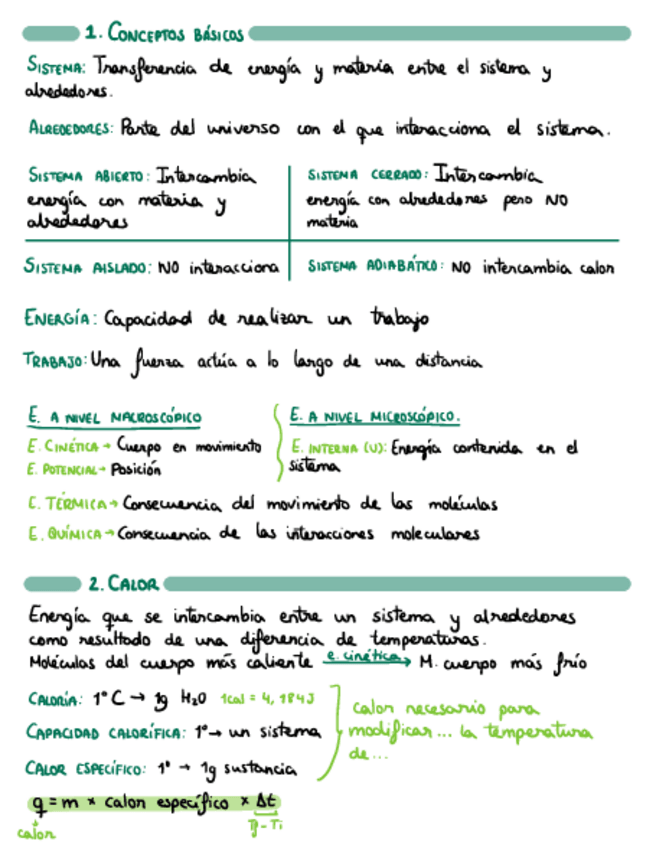 1. CONCEPTOS BÁSICOS
SISTEMA: Transferencia de energía y materia entre el sistema y
alrededores.
ALREDEDORES: Parte del universo con el que interacciona el sistema.
SISTEMA ABIERTO: Intercambia
energía con materia y
alrededores
SISTEMA CERRADO: Intercambia
energía con alrededores pero NO
materia
SISTEMA AISLADO: NO interacciona
SISTEMA ADIABÁTICO: NO intercambia calor
ENERGÍA: Capacidad de realizar un trabajo
TRABAJO: Una fuerza actúa a lo largo de una distancia
E. A NIVEL MACROSCÓPICO
E. CINÉTICA → Cuerpo en movimiento
E. POTENCIAL → Posición
E. A NIVEL MICROSCÓPICO.
E. INTERNA (U): Energía contenida en el
sistema
E. TÉRMICA → Consecuencia del movimiento de las moléculas
E. QUÍMICA → Consecuencia de las interacciones moleculares
2. CALOR
Energía que se intercambia entre un sistema y alrededores
como resultado de una diferencia de temperaturas.
Moléculas del cuerpo más caliente e. cinética → M. cuerpo más frío
CALORÍA: 1°C → 1g H₂O 1cal = 4,184J
CAPACIDAD CALORÍFICA: 1° → un sistema
CALOR ESPECÍFICO: 1° → 1g sustancia
calor necesario para
modificar... la temperatura
de...
q = m × calor específico × Δt
calor
Tf - Ti